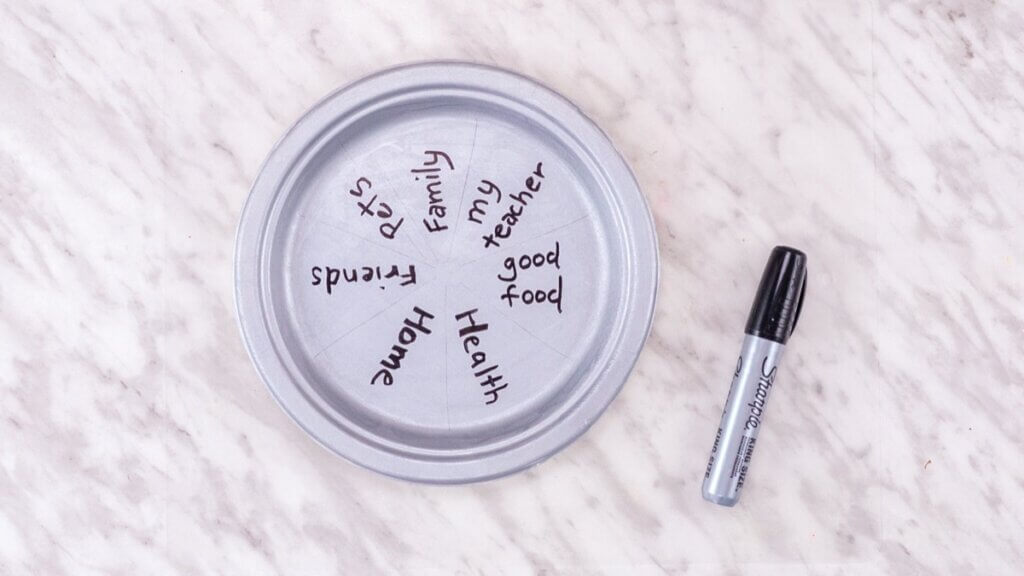 Family
my
teacher
good
food
Health
Home
Friends
Pets
Sharpie
KING SIZE
KING SIZE